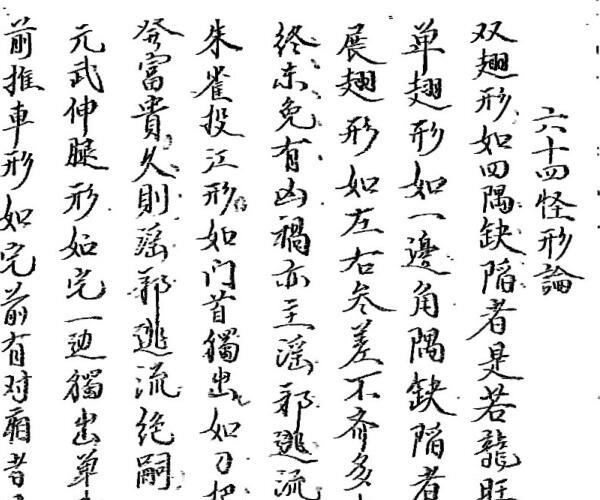 六十四怪形論
双翅形如四隅缺陷者是若龍旺
单翅形如一邊角隅缺陷者
展翅形如左右参差不齐多
終东免有凶禍亦主淫邪逃流
朱雀投江形如门首獨出如刀把
發富貴久則淫邪逃流绝嗣
元武伸腿形如宅一边獨出单
前推車形如宅前有对廂者